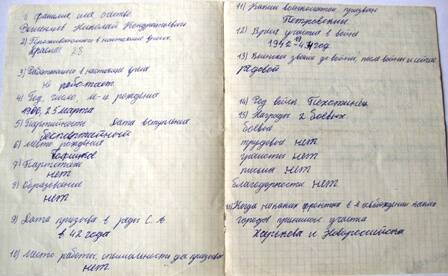 1) фамилия имя отчество
Семенцев Николай Кондратьевич
2) Проживаемого в настоящее время
Красных 25
3) Работающего в настоящее время
не работает
4) Год, число, м-ц рождения
1906, 25 марта
5) Партийность дата вступления
беспартийный
6) место рождения
7) Партстаж
нет
8) Образование
нет
9) Дата призыва в ряды С.А.
в 42 года
10) место работы, специальность до призыва
нет
11) Каким военкоматом призван
Петровским
12) Время участия в войне
1942-43 год
13) Воинское звание до войны, после войны и сейчас
рядовой
14) Род войск Пехотинец
15) Награды 2 боевых
боевые
трудовые нет
ценности нет
письма нет
благодарности нет
16) Когда на каких фронтах в освобождении каких
городов принимал участие
Харькова и Новороссийска